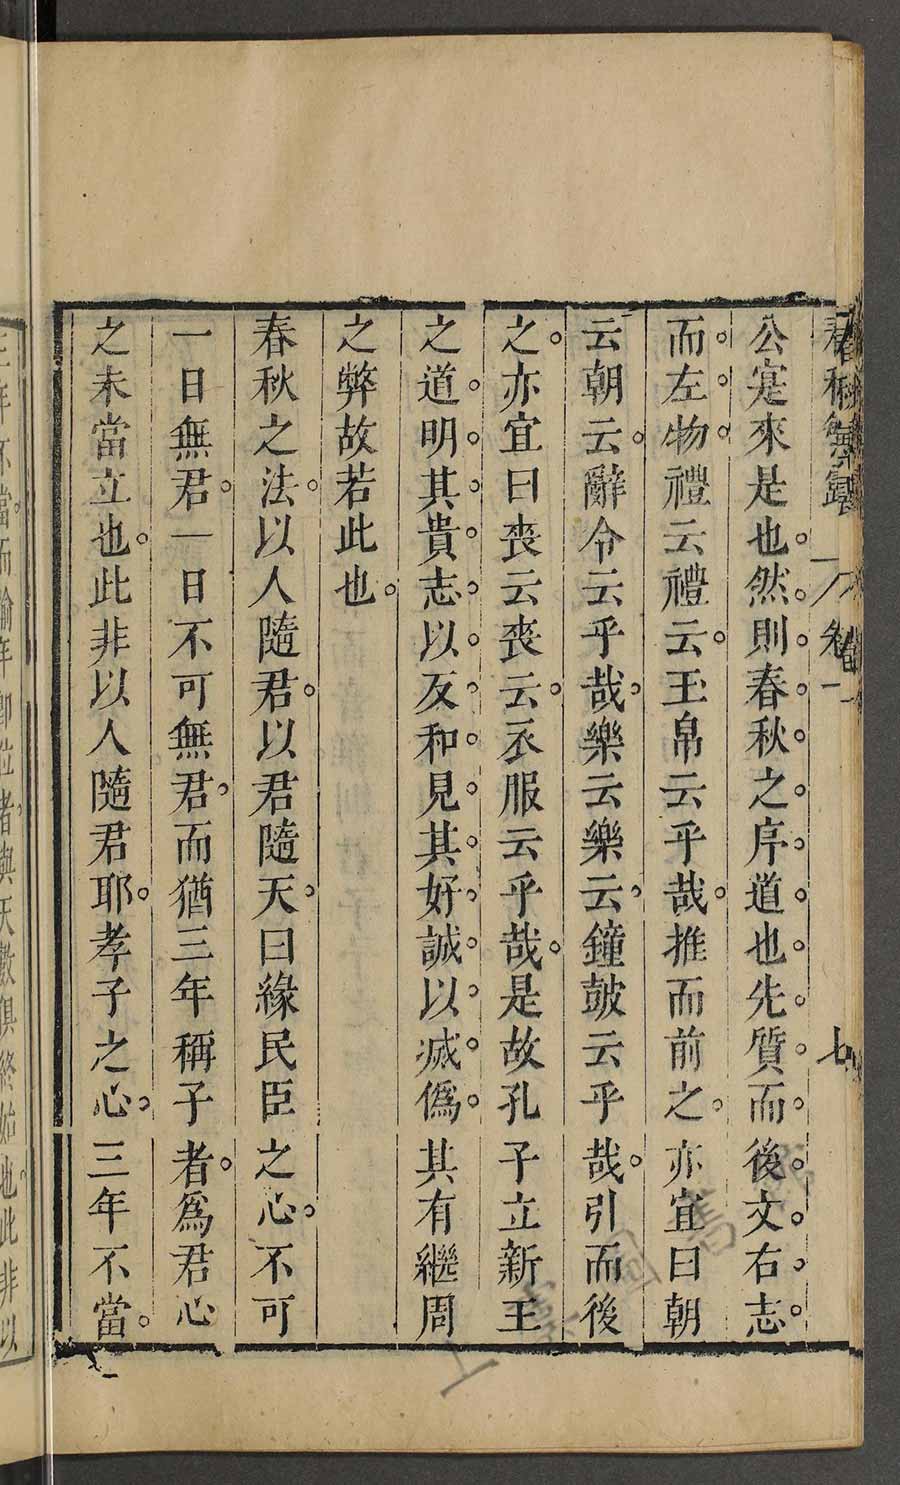 春秋繁露 卷一 七
公寔來是也然則春秋之序道也先質而後文右志
而左物禮云禮云玉帛云乎哉推而前之亦宜曰朝
云朝云辭令云乎哉樂云樂云鐘鼓云乎哉引而後
之亦宜曰喪云喪云衣服云乎哉是故孔子立新王
之道明其貴志以反和見其好誠以滅僞其有繼周
之弊故若此也
春秋之法以人隨君以君隨天曰緣民臣之心不可
一日無君一日不可無君而猶三年稱子者爲君心
之未當立也此非以人隨君耶孝子之心三年不當
三年不當而踰年即位者與天數俱終始也此非以